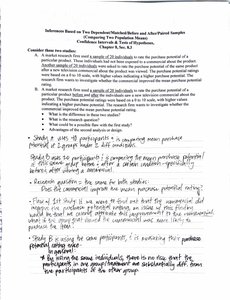 Inferences Based on Two Dependent/Matched/Before and After/Paired Samples
(Comparing Two Population Means)
Confidence Intervals & Tests of Hypotheses,
Chapter 8, Sec. 8.3
Consider these two studies:
A. A market research firm used a sample of 20 individuals to rate the purchase potential of a
particular product. These individuals had not been exposed to a commercial about the product.
Another sample of 20 individuals were asked to rate the purchase potential of the same product
after a new television commercial about the product was viewed. The purchase potential ratings
were based on a 0 to 10 scale, with higher values indicating a higher purchase potential. The
research firm wants to investigate whether the commercial improved the mean purchase potential
rating.
B. A market research firm used a sample of 20 individuals to rate the purchase potential of a
particular product before and after the individuals saw a new television commercial about the
product. The purchase potential ratings were based on a 0 to 10 scale, with higher values
indicating a higher purchase potential. The research firm wants to investigate whether the
commercial improved the mean purchase potential rating.
• What is the difference in these two studies?
• What is the research question?
• What could be a possible flaw with the first study?
• Advantages of the second analysis design.
Study A uses 40 participants & is comparing mean purchase
potential of 2 groups under 2 diff conditions.
Study B uses 20 participants & is comparing the mean purchase potential
of the same group before & after
before/after viewing a commercial.
• Research question: the same for both studies:
Does the commercial improve the mean purchase potential rating?
• Flaw of 1st Study: If we were to find out that the commercial did
improve the purchase potential rating, an issue w/ this finding
would be that we cannot attribute this improvement to the commercial.
What if the group that viewed the commercial was more likely to
purchase the item?
• Study B is using the same participants, & is evaluating their purchase
potential rating twice.
By using the same individuals, there is no risk that the
participants in one group/treatment are substantially diff. from
the participants in the other group.